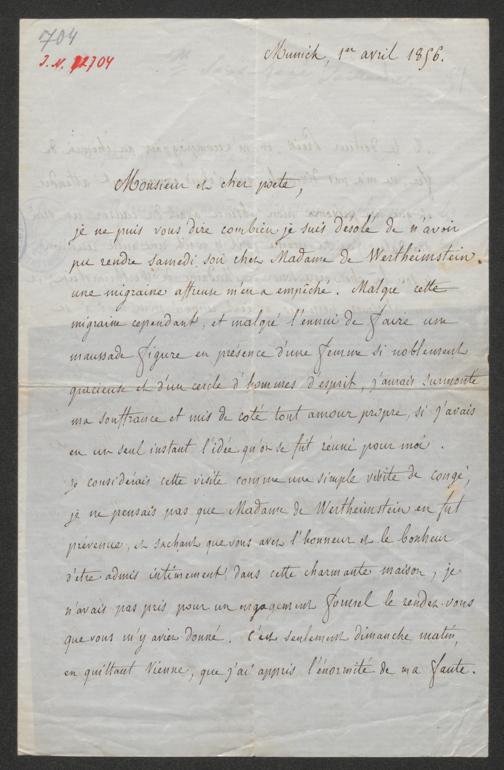 704
J. N. 72704
Munich, 1er avril 1856.
Monsieur et cher poete,
je ne puis vous dire combien je suis désolé de n'avoir
pu me rendre samedi soir chez Madame de Wertheimstein.
une migraine affreuse m'en a empêché. Malgré cette
migraine cependant, et malgré l'ennui de faire une
maussade figure en présence d'une femme si noblement
gracieuse et d'un cercle d'hommes d'esprit, j'aurais surmonté
ma souffrance et mis de coté tout amour propre, si j'avais
eu un seul instant l'idée qu'on se fut réuni pour moi.
je considérais cette visite comme une simple visite de congé,
je ne pensais pas que Madame de Wertheimstein en fut
prévenue, et sachant que vous avez l'honneur et le bonheur
d'etre admis intimement dans cette charmante maison, je
n'avais pas pris pour un engagement formel le rendez-vous
que vous m'y aviez donné. C'est seulement dimanche matin,
en quittant Vienne, que j'ai appris l'énormité de ma faute.